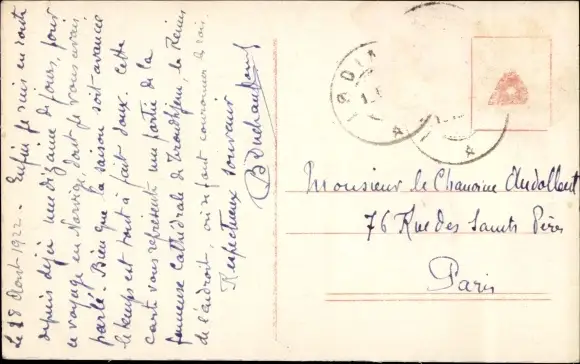 Le 28 Aout 1922. Enfin je suis en route
depuis déjà une dizaine de jours, pour
ce voyage en Norvège dont je vous avais
parlé. Bien que la saison soit avancée
le temps est tout à fait doux. Cette
carte vous représente une partie de la
fameuse Cathédrale de Trondhjem, le Reims
de l'endroit, où se font couronner le rois.
Respectueux souvenir
Monsieur le Chanoine Audollent
76 Rue des Saints Pères
Paris